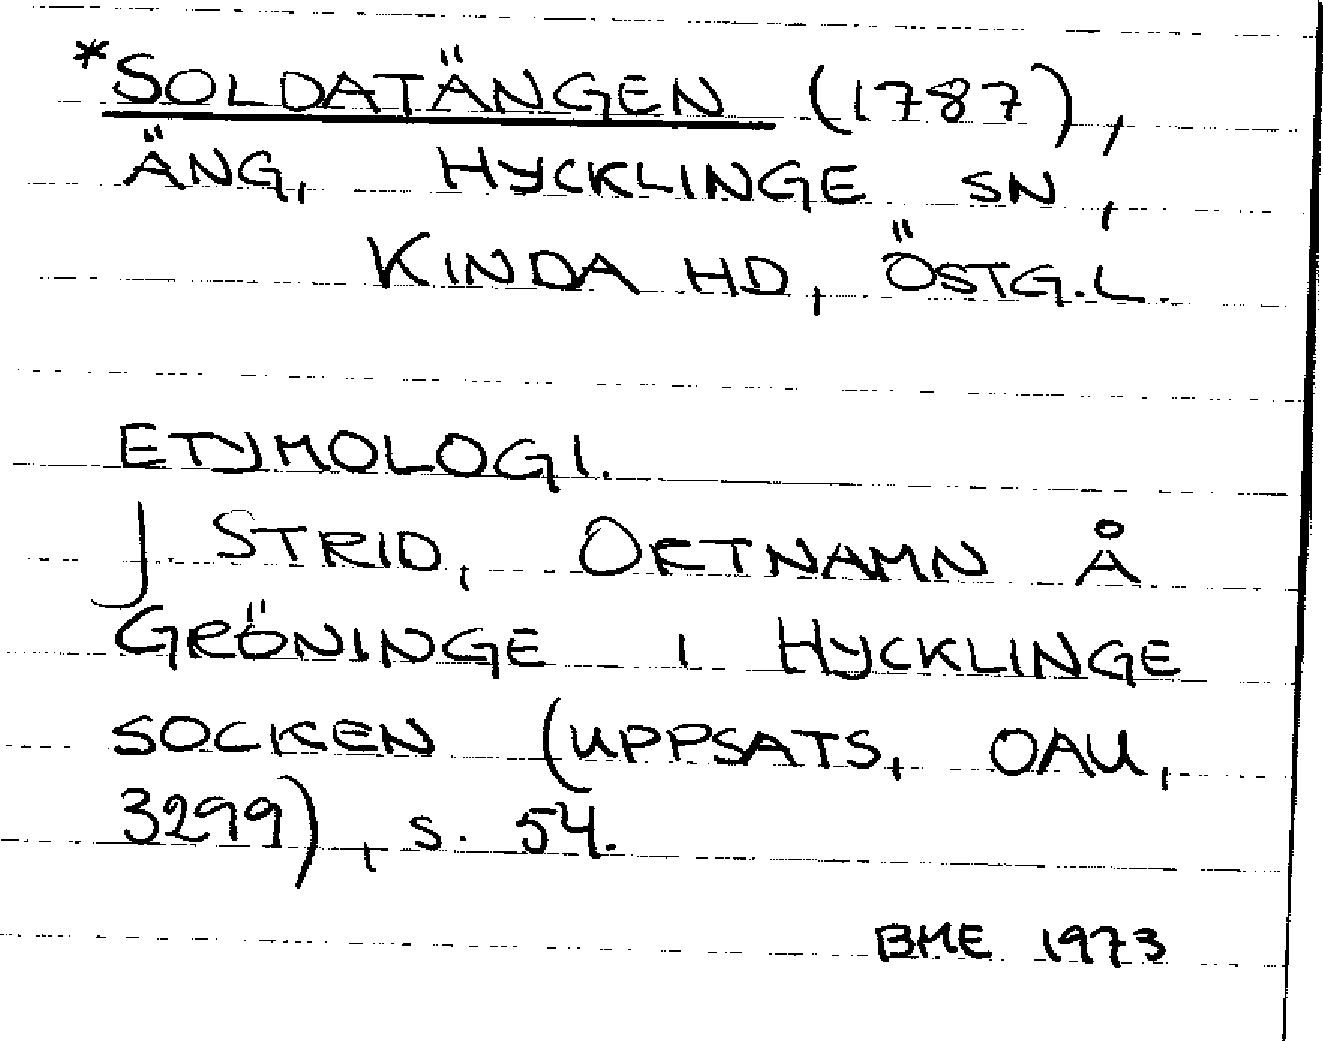 *SOLDATÄNGEN (1787),
ÄNG, HYCKLINGE SN,
KINDA HD, ÖSTG.L.
ETYMOLOGI.
J STRID, ORTNAMN Å
GRÖNINGE I HYCKLINGE
SOCKEN (UPPSATS, OAU,
3299), S. 54.
BME 1973